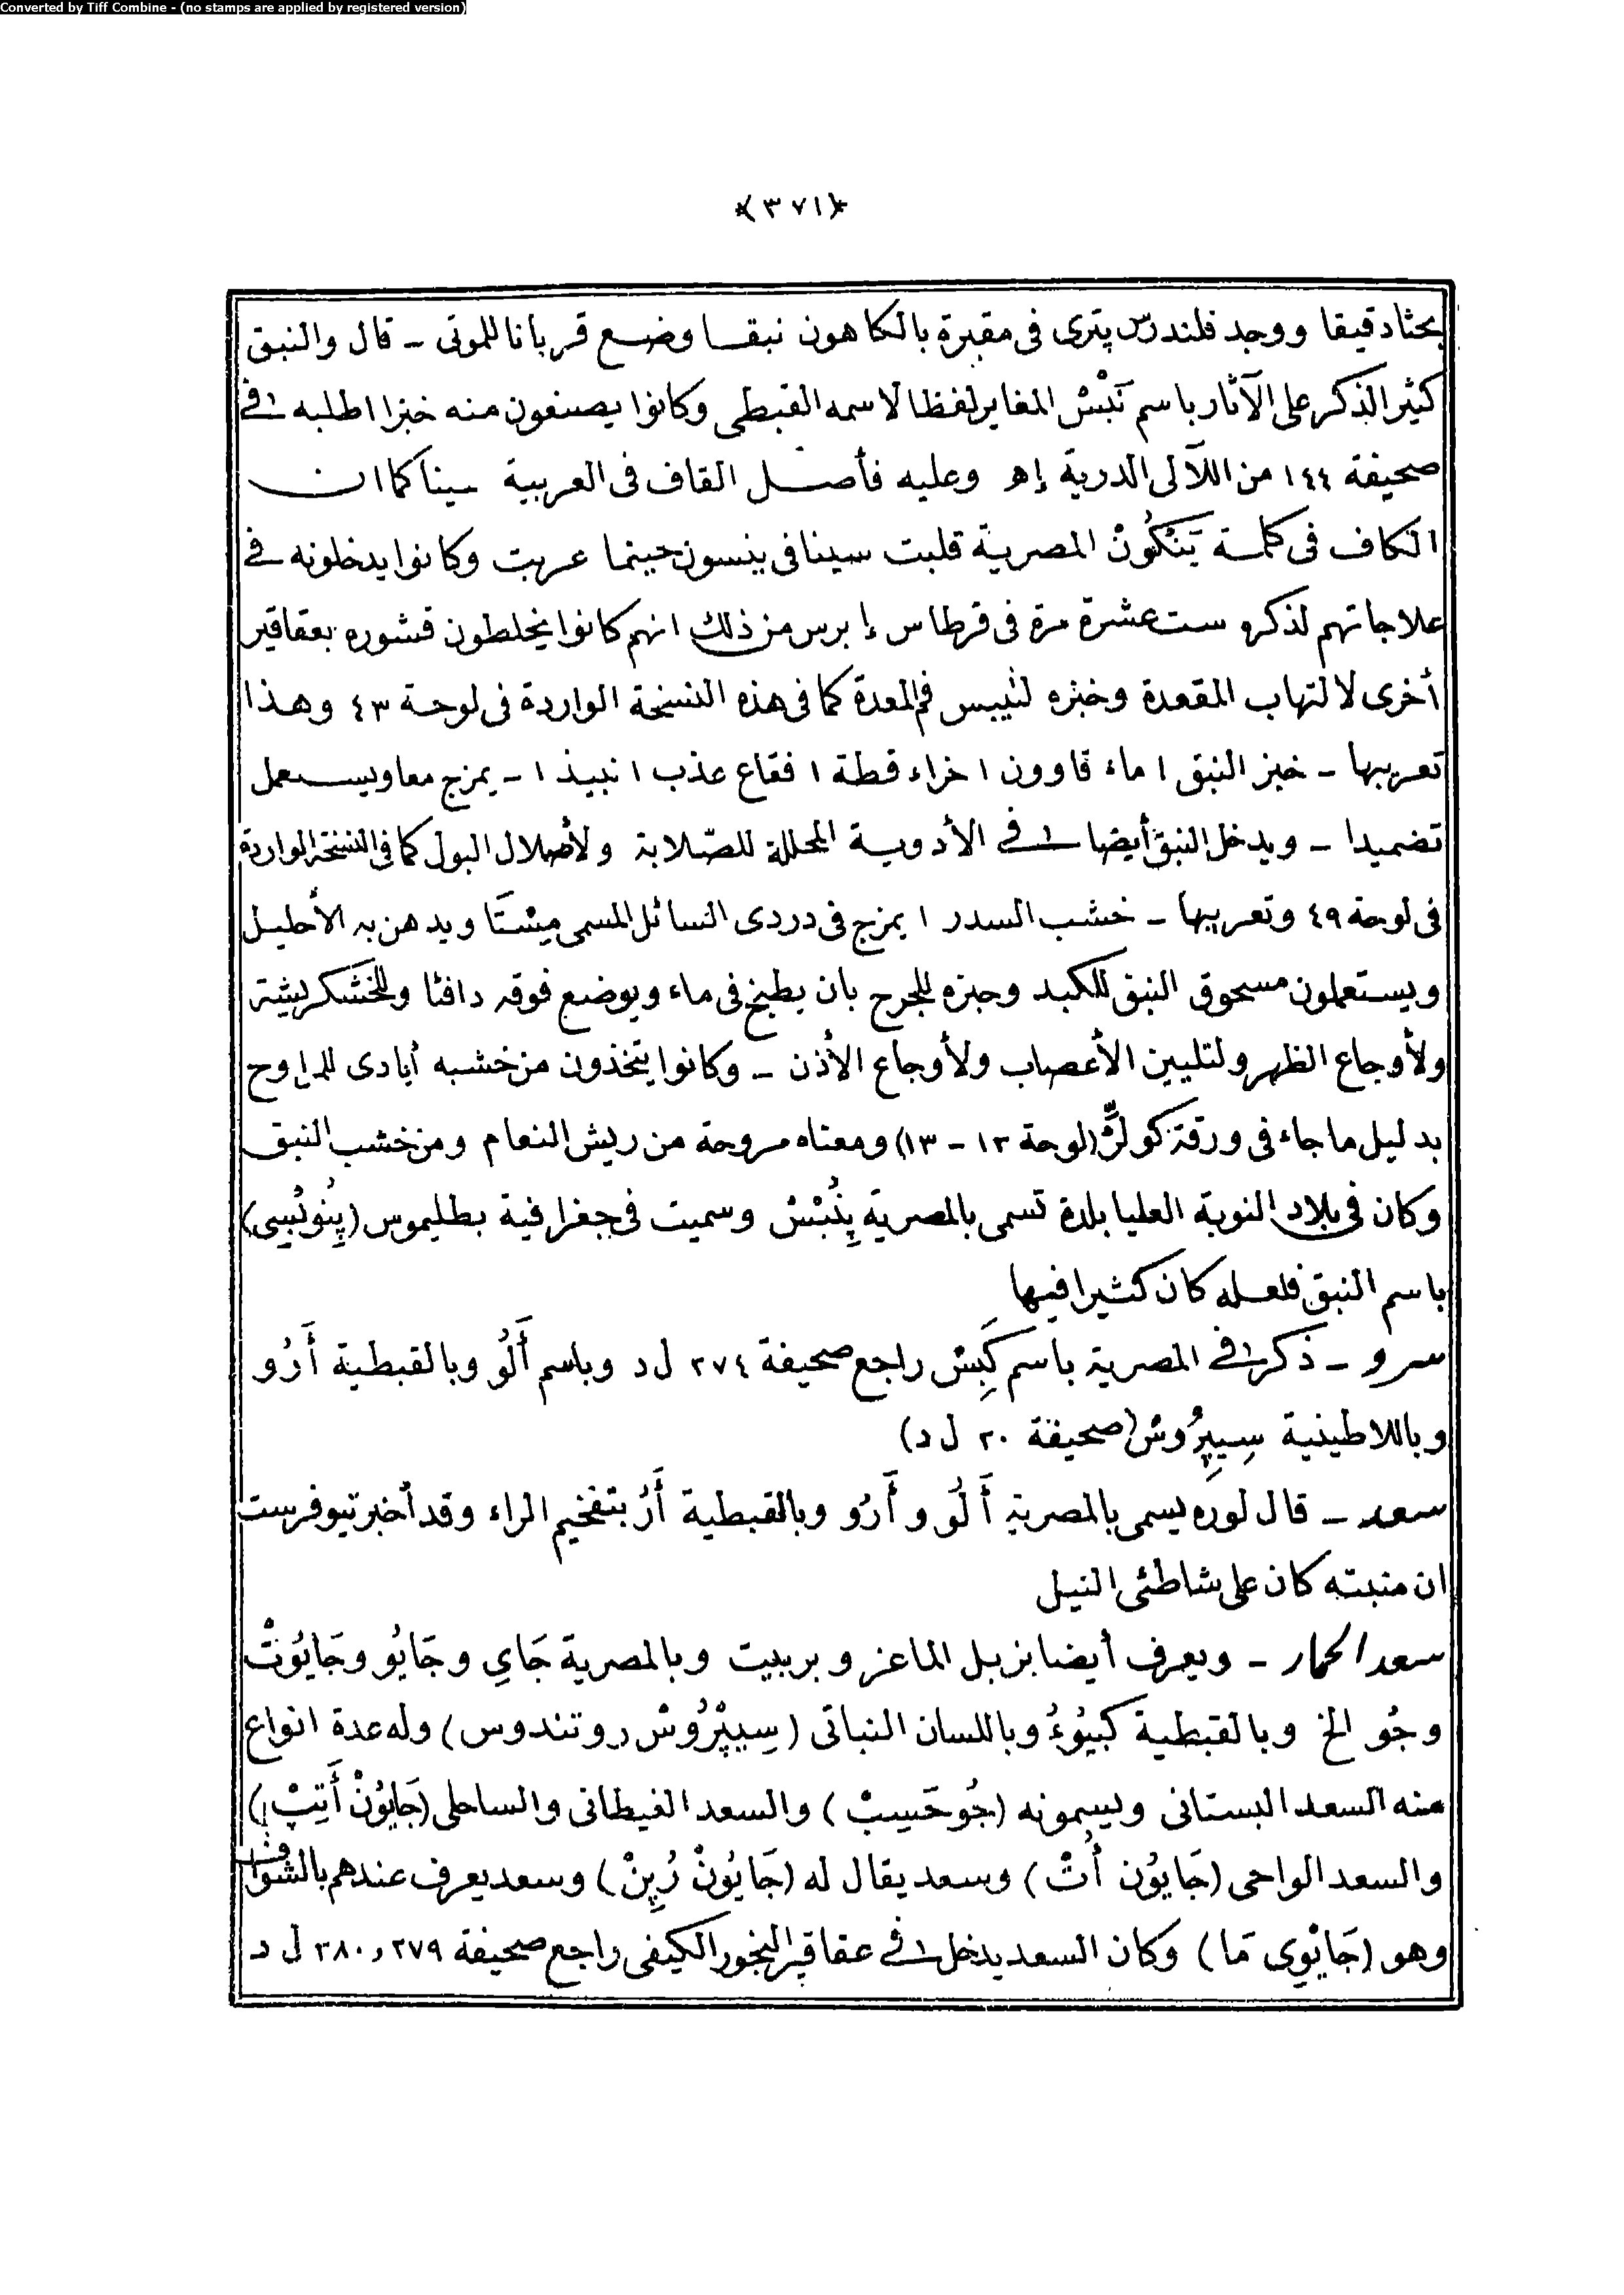 Converted by Tiff Combine - (no stamps are applied by registered version)
﴿٣٧١﴾
بحثا دقيقا ووجد فلندرس پترى فى مقبرة بالكاهون نبقا وضع قربانا للموتى – قال والنبق
كثير الذكر على الآثار باسم نَبْش المغاير لفظا لاسمه القبطى وكانوا يصنعون منه خبزا اطلبه فى
صحيفة ١٤٤ من اللآلى الدرية إهـ وعليه فأصل القاف فى العربية سينا كما ان
الكاف فى كلمة يَنْكُونْ المصرية قلبت سينا فى ينسون حينما عربت وكانوا يدخلونه فى
علاجاتهم لذكره ست عشرة مرة فى قرطاس إبرس من ذلك انهم كانوا يخلطون قشوره بعقاقير
أخرى لالتهاب المقعدة وخبزه لتيبس فم المعدة كما فى هذه النسخة الواردة فى لوحة ٤٣ وهذا
تعريبها – خبز النبق ١ ماء قاوون ١ خراء قطة ١ فقاع عذب ١ نبيذ ١ – يمزج معا ويستعمل
تضميدا – ويدخل النبق أيضا فى الأدوية المحللة للصلابة ولأصلال البول كما فى النسخة الواردة
فى لوحة ٤٩ وتعريبها – خشب السدر ١ يمزج فى دردى السائل المسمى مِشْتَا ويدهن به الأحليل
ويستعملون مسحوق النبق للكبد وخبزه للجرح بان يطبخ فى ماء ويوضع فوقه دافئا وللخشكريشة
ولأوجاع الظهر ولتليين الأعصاب ولأوجاع الأذن – وكانوا يتخذون من خشبه أيادى للمراوح
بدليل ما جاء فى ورقة كولر (لوحة ١٣ – ١٣) ومعناه مروحة من ريش النعام ومن خشب النبق
وكان فى بلاد النوبة العليا بلدة تسمى بالمصرية پِنُبْش وسميت فى جغرافية بطليموس (پِنُوبْسِى)
باسم النبق فلعله كان كثيرا فيها
سرو – ذكر فى المصرية باسم كَبِش راجع صحيفة ٢٧٤ ل د وباسم أَلُو وبالقبطية أَرُو
وباللاطينية سِيپِرُوش (صحيفة ٢٠ ل د)
سعد – قال لوره يسمى بالمصرية أَلُو و أَرُو وبالقبطية أَرُ بتفخيم الراء وقد أخبر تيوفرست
ان منبته كان على شاطئى النيل
سعد الحمار – ويعرف أيضا بزبل الماعز وبربيت وبالمصرية جَاىِ وجَايُو وجَايُونْتْ
وجُو الخ وبالقبطية كَبْيُوءُ وباللسان النباتى (سِيپْرُوش روتندوس) وله عدة انواع
منه السعد البستانى ويسمونه (جُو حَسِبْ) والسعد الغيطانى والساحلى (جَايُونْ أَتِبْ)
والسعد الواحى (جَايُون أُتْ) وسعد يقال له (جَايُونْ رُپِنْ) وسعد يعرف عندهم بالشواف
وهو (جَايْوِى مَا) وكان السعد يدخل فى عقاقير البخور الكيفى راجع صحيفة ٢٧٩ و ٢٨٠ ل د